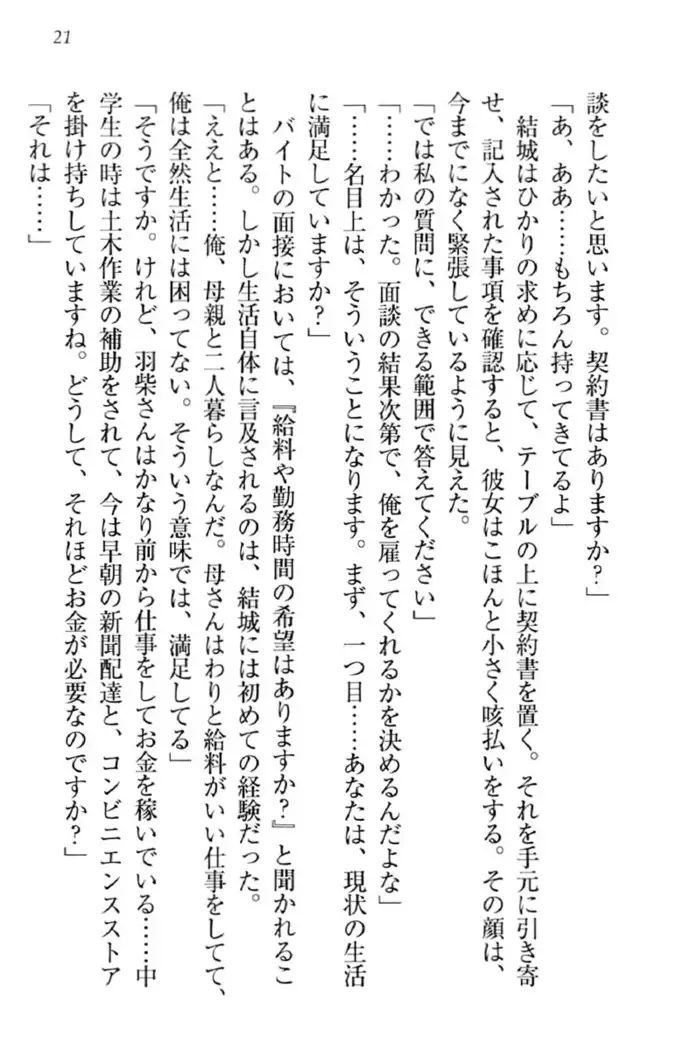 21
談をしたいと思います。契約書はありますか？」
「あ、ああ……もちろん持ってきてるよ」
　結城はひかりの求めに応じて、テーブルの上に契約書を置く。それを手元に引き寄
せ、記入された事項を確認すると、彼女はこほんと小さく咳払いをする。その顔は、
今までになく緊張しているように見えた。
「では私の質問に、できる範囲で答えてください」
「……わかった。面談の結果次第で、俺を雇ってくれるかを決めるんだよな」
「……名目上は、そういうことになります。まず、一つ目……あなたは、現状の生活
に満足していますか？」
　バイトの面接においては、『給料や勤務時間の希望はありますか？』と聞かれるこ
とはある。しかし生活自体に言及されるのは、結城には初めての経験だった。
「ええと……俺、母親と二人暮らしなんだ。母さんはわりと給料がいい仕事をしてて、
俺は全然生活には困ってない。そういう意味では、満足してる」
「そうですか。けれど、羽柴さんはかなり前から仕事をしてお金を稼いでいる……中
学生の時は土木作業の補助をされて、今は早朝の新聞配達と、コンビニエンスストア
を掛け持ちしていますね。どうして、それほどお金が必要なのですか？」
「それは……」